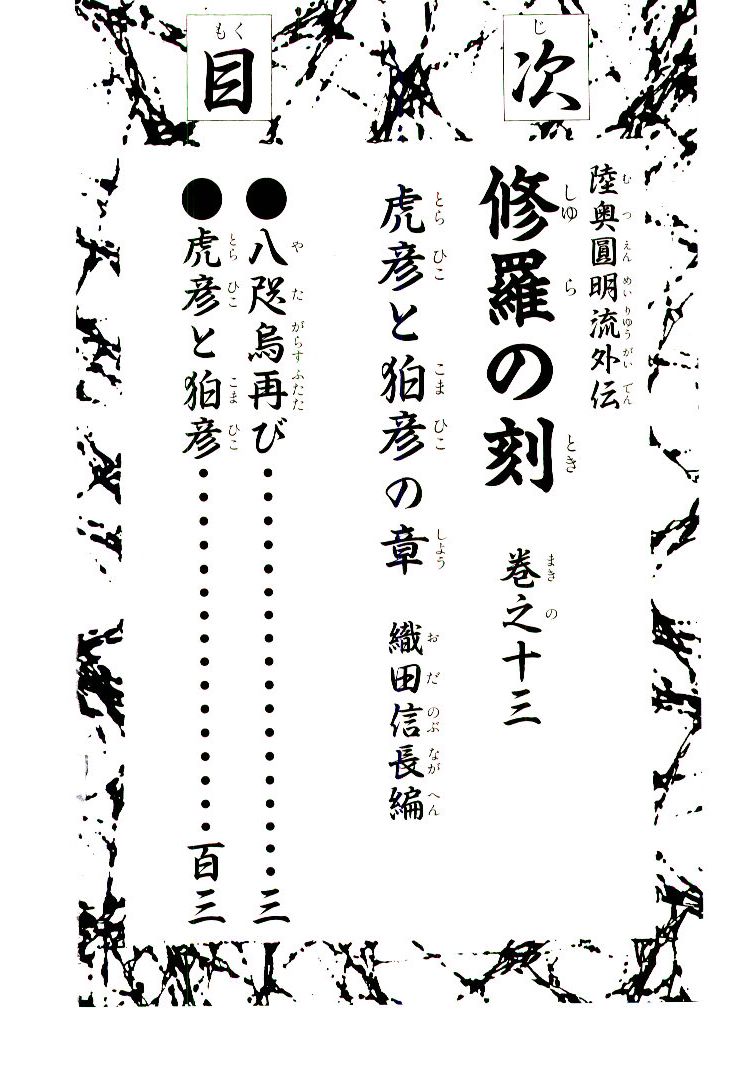 目次
陸奥圓明流外伝
修羅の刻 巻之十三
虎彦と狛彦の章 織田信長編
●八咫烏再び・・・・・・・・・・・・・・・・・・三
●虎彦と狛彦・・・・・・・・・・・・・・・・百三